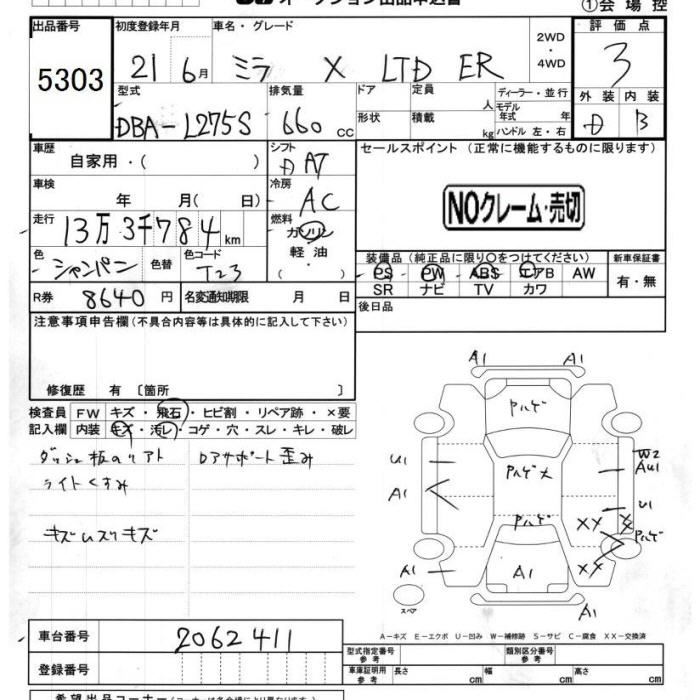 オークション出品申込書
①会場控
出品番号
5303
初度登録年月
21 6月
車名・グレード
ミラ X LTD ER
2WD
・
4WD
評価点
3
外装 内装
D B
型式
DBA-L275S
排気量
660 CC
ドア
定員
人
形状
積載
kg
ディーラー・並行
モデル年式 年
ハンドル 左・右
車歴
自家用・( )
シフト
D AT
セールスポイント (正常に機能するものに限ります)
NOクレーム・売切
車検
年 月( 日)
冷房
AC
走行
13万3千784 km
燃料
ガソリン
軽油
・( )
色
シャンパン
色替
色コード
T23
装備品 (純正品に限り○をつけてください)
PS PW ABS エアB AW
SR ナビ TV カワ
新車保証書
有・無
R券 8640円
名変通知期限 月 日
後日品
注意事項申告欄 (不具合内容等は具体的に記入して下さい)
修復歴 有 〔箇所 〕
検査員 FW キズ・飛石・ヒビ割・リペア跡・×要
記入欄 内装 キズ・汚レ・コゲ・穴・スレ・キレ・破レ
ダッシュ板のリアト
ライトくすみ
キズムスリキズ
ロアサポート歪み
A1 A1
ハルゲ
U1
A1
ハルゲメ
W2
AU1
U1
ハルゲ
XX
X
ハルゲ
A1
A1
XX
A1
スペア
A-キズ E-エクボ U-凹み W-補修跡 S-サビ C-腐食 XX-交換済
車台番号 2062411
登録番号
型式指定番号
参考
類別区分番号
参考
車庫証明用
参考
長さ cm 幅 cm 高さ cm
希望出品コーナー